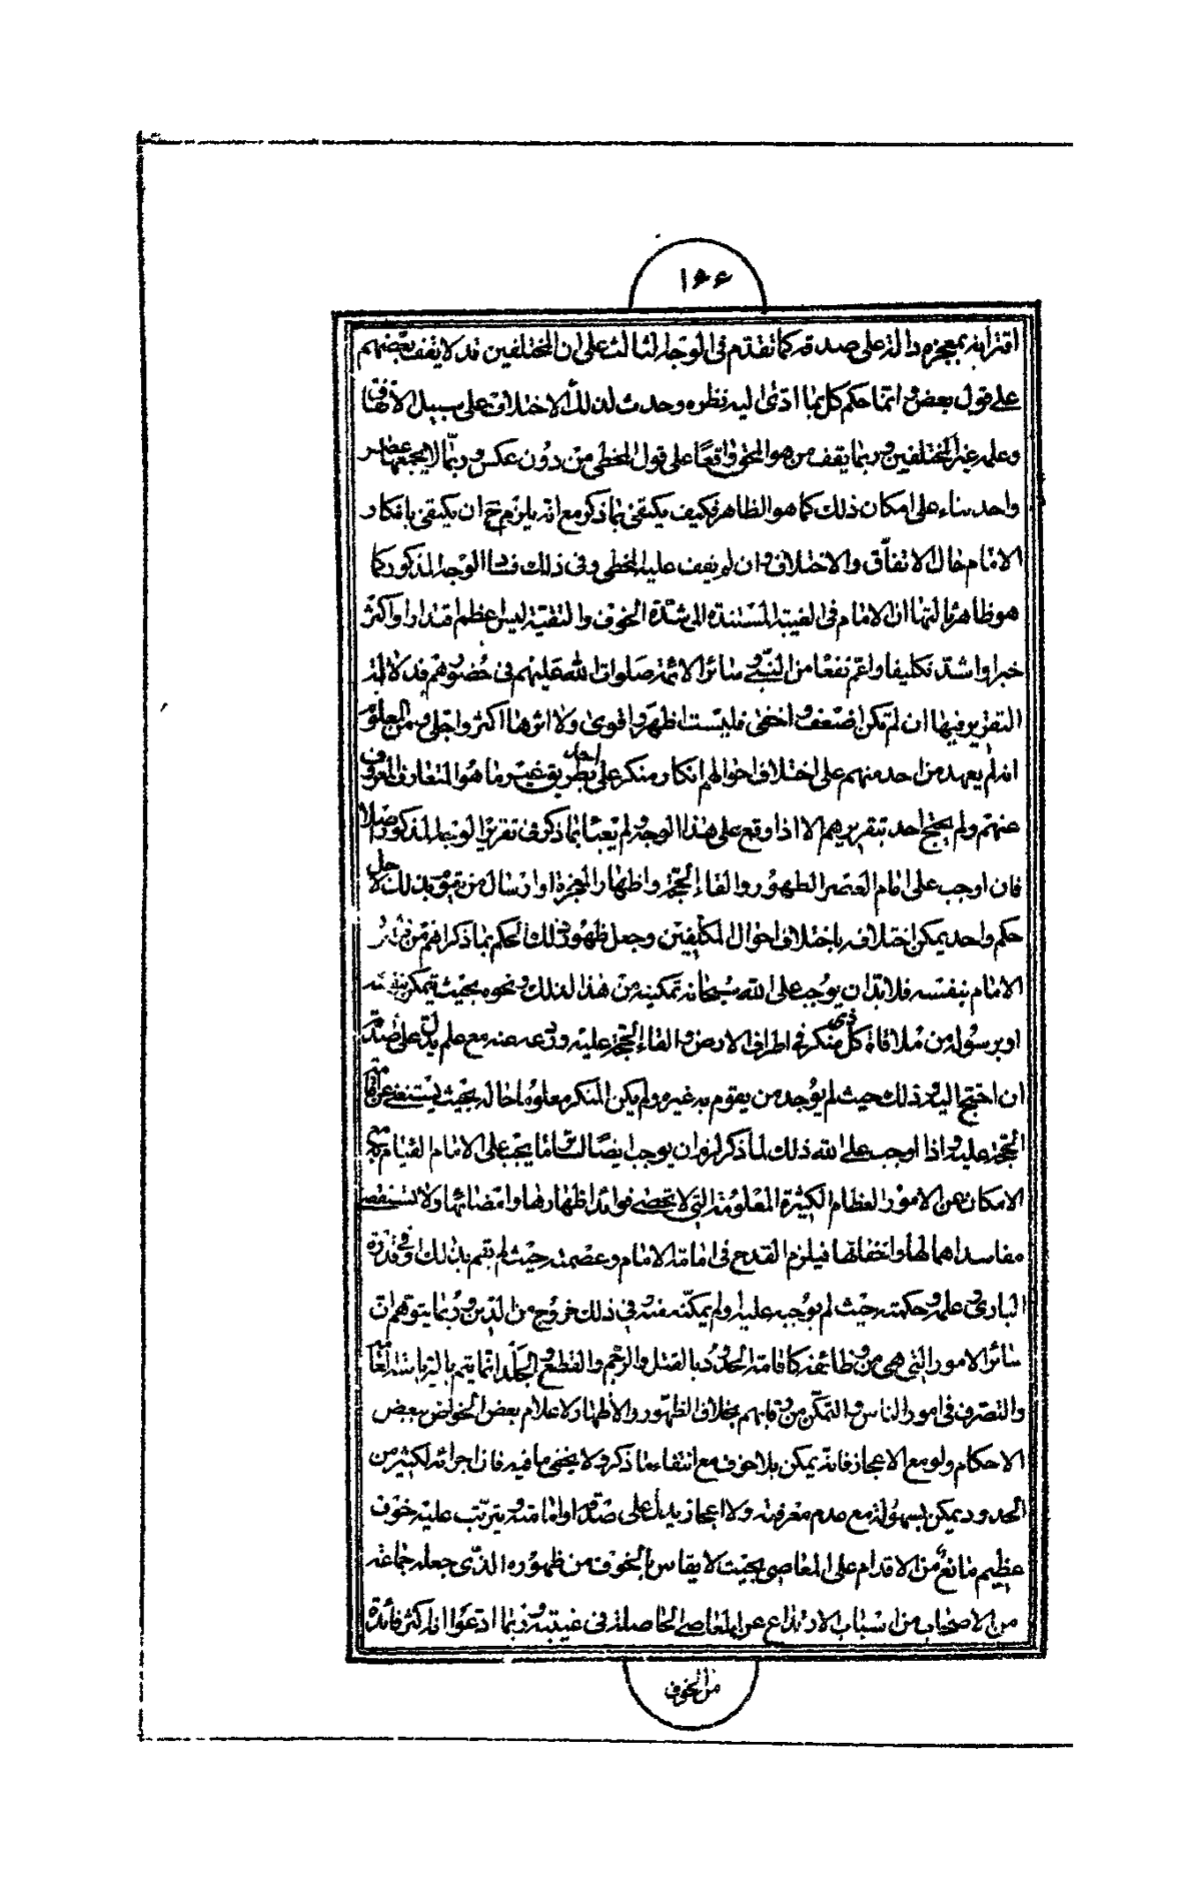 ١٦٦
اقترانه بمعجزة دالة على صدقه كما تقدم فى الوجه الثالث على ان المختلفين قد لا يقف بعضهم
على قول بعض و انما حكم كل بما ادى اليه نظره وحدث لذلك الاختلاف على سبيل الاتفاق
وعلمه غير المختلفين وربما يقف من هو المحق واقعًا على قول المخطى من دون عكس وربّما لا يجمعهما عصر
واحد بناء على امكان ذلك كما هو الظاهر فكيف يكتفى بما ذكر مع انه يلزم ح ان يكتفى بانكار
الامام حال الاتفاق والاختلاف وان لم يقف عليه المخطى وفى ذلك فساد الوجه المذكور كما
هو ظاهر ثالثها ان الامام فى الغيبة المستندة الى شدة الخوف والتقية ليس اعظم اقتدارا واكثر
خبرا واشد تكليفا واعم نفعا من النبى و سائر الائمة صلوات الله عليهم فى حضورهم فدلالة
التقرير فيها ان لم تكن اضعف و اخفى فليست اظهر و اقوى ولا اثرها اكثر واجلى ومن المعلوم
انه لم يعهد من احد منهم على اختلاف احوالهم انكار منكر على احد بطريق غير ما هو المتعارف المعروف
عنهم ولم يحتج احد بتقريرهم الا اذا وقع على هذا الوجه ولم يعبأ بما ذكر فى تقرير الوجه المذكور اصلا
فان اوجب على امام العصر الظهور والقاء الحجة واظهار المعجزة او ارسال من يقوم بذلك لاجل
حكم واحد يمكن اختلافه باختلاف احوال المكلفين وجعل ظهور ذلك الحكم بما ذكر اهم من
الامام بنفسه فلا بد ان يوجب على الله سبحانه تمكينه من هذا لذلك و نحوه بحيث يتمكن بنفسه
او برسوله من ملاقاة كل ذى منكر فى اطراف الارض و القاء الحجة عليه وردعه عنه مع علم يدل على صدقه
ان احتج اليه وذلك حيث لم يوجد من يقوم به غيره ولم يكن المنكر معلوما حاله بحيث يستغنى عن اقامة
الحجة عليه و اذا اوجب على الله ذلك لما ذكر لزم ان يوجب ايضا سائر ما يجب على الامام القيام به مع
الامكان من الامور العظام الكثيرة المعلومة التى لا تحصى فوائد اظهارها وامضائها ولا تستقصى
مفاسد اهمالها واخفائها فيلزم القدح فى امامة الامام وعصمته حيث لم يقم بذلك و فى قدرة
البارى و علمه و حكمته حيث لم يوجبه عليه او لم يمكنه منه و فى ذلك خروج من الدين و ربما يتوهم ان
سائر الامور التى هى من وظائفه كاقامة الحدود بالقتل والرجم والقطع و الجلد انما يتم بالرياسة العامة
والتصرف فى امور الناس و التمكن من رقابهم بخلاف الظهور والاظهار لاعلام بعض الخواص ببعض
الاحكام ولو مع الاعجاز فانه يمكن بلا خوف مع انتفاء ما ذكر ولا يخفى ما فيه فان اجرائه لكثير من
الحدود يمكن بسهولة مع عدم معرفته ولا اعجاز يدل على صدقه او امامته و يترتب عليه خوف
عظيم مانع من الاقدام على المعاصى بحيث لا يقاس بالخوف من ظهوره الذى جعله جماعة
من الاصحاب من اسباب الارتداع عن المعاصى الحاصلة فى غيبته و ربما ادعوا انه اكثر فائدة
من الخوف